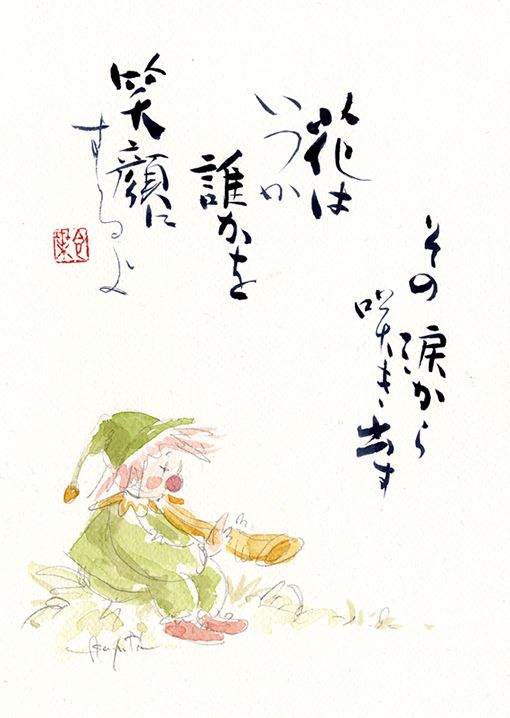 その涙から
咲き出す
花は
いつか
誰かを
笑顔に
するよ